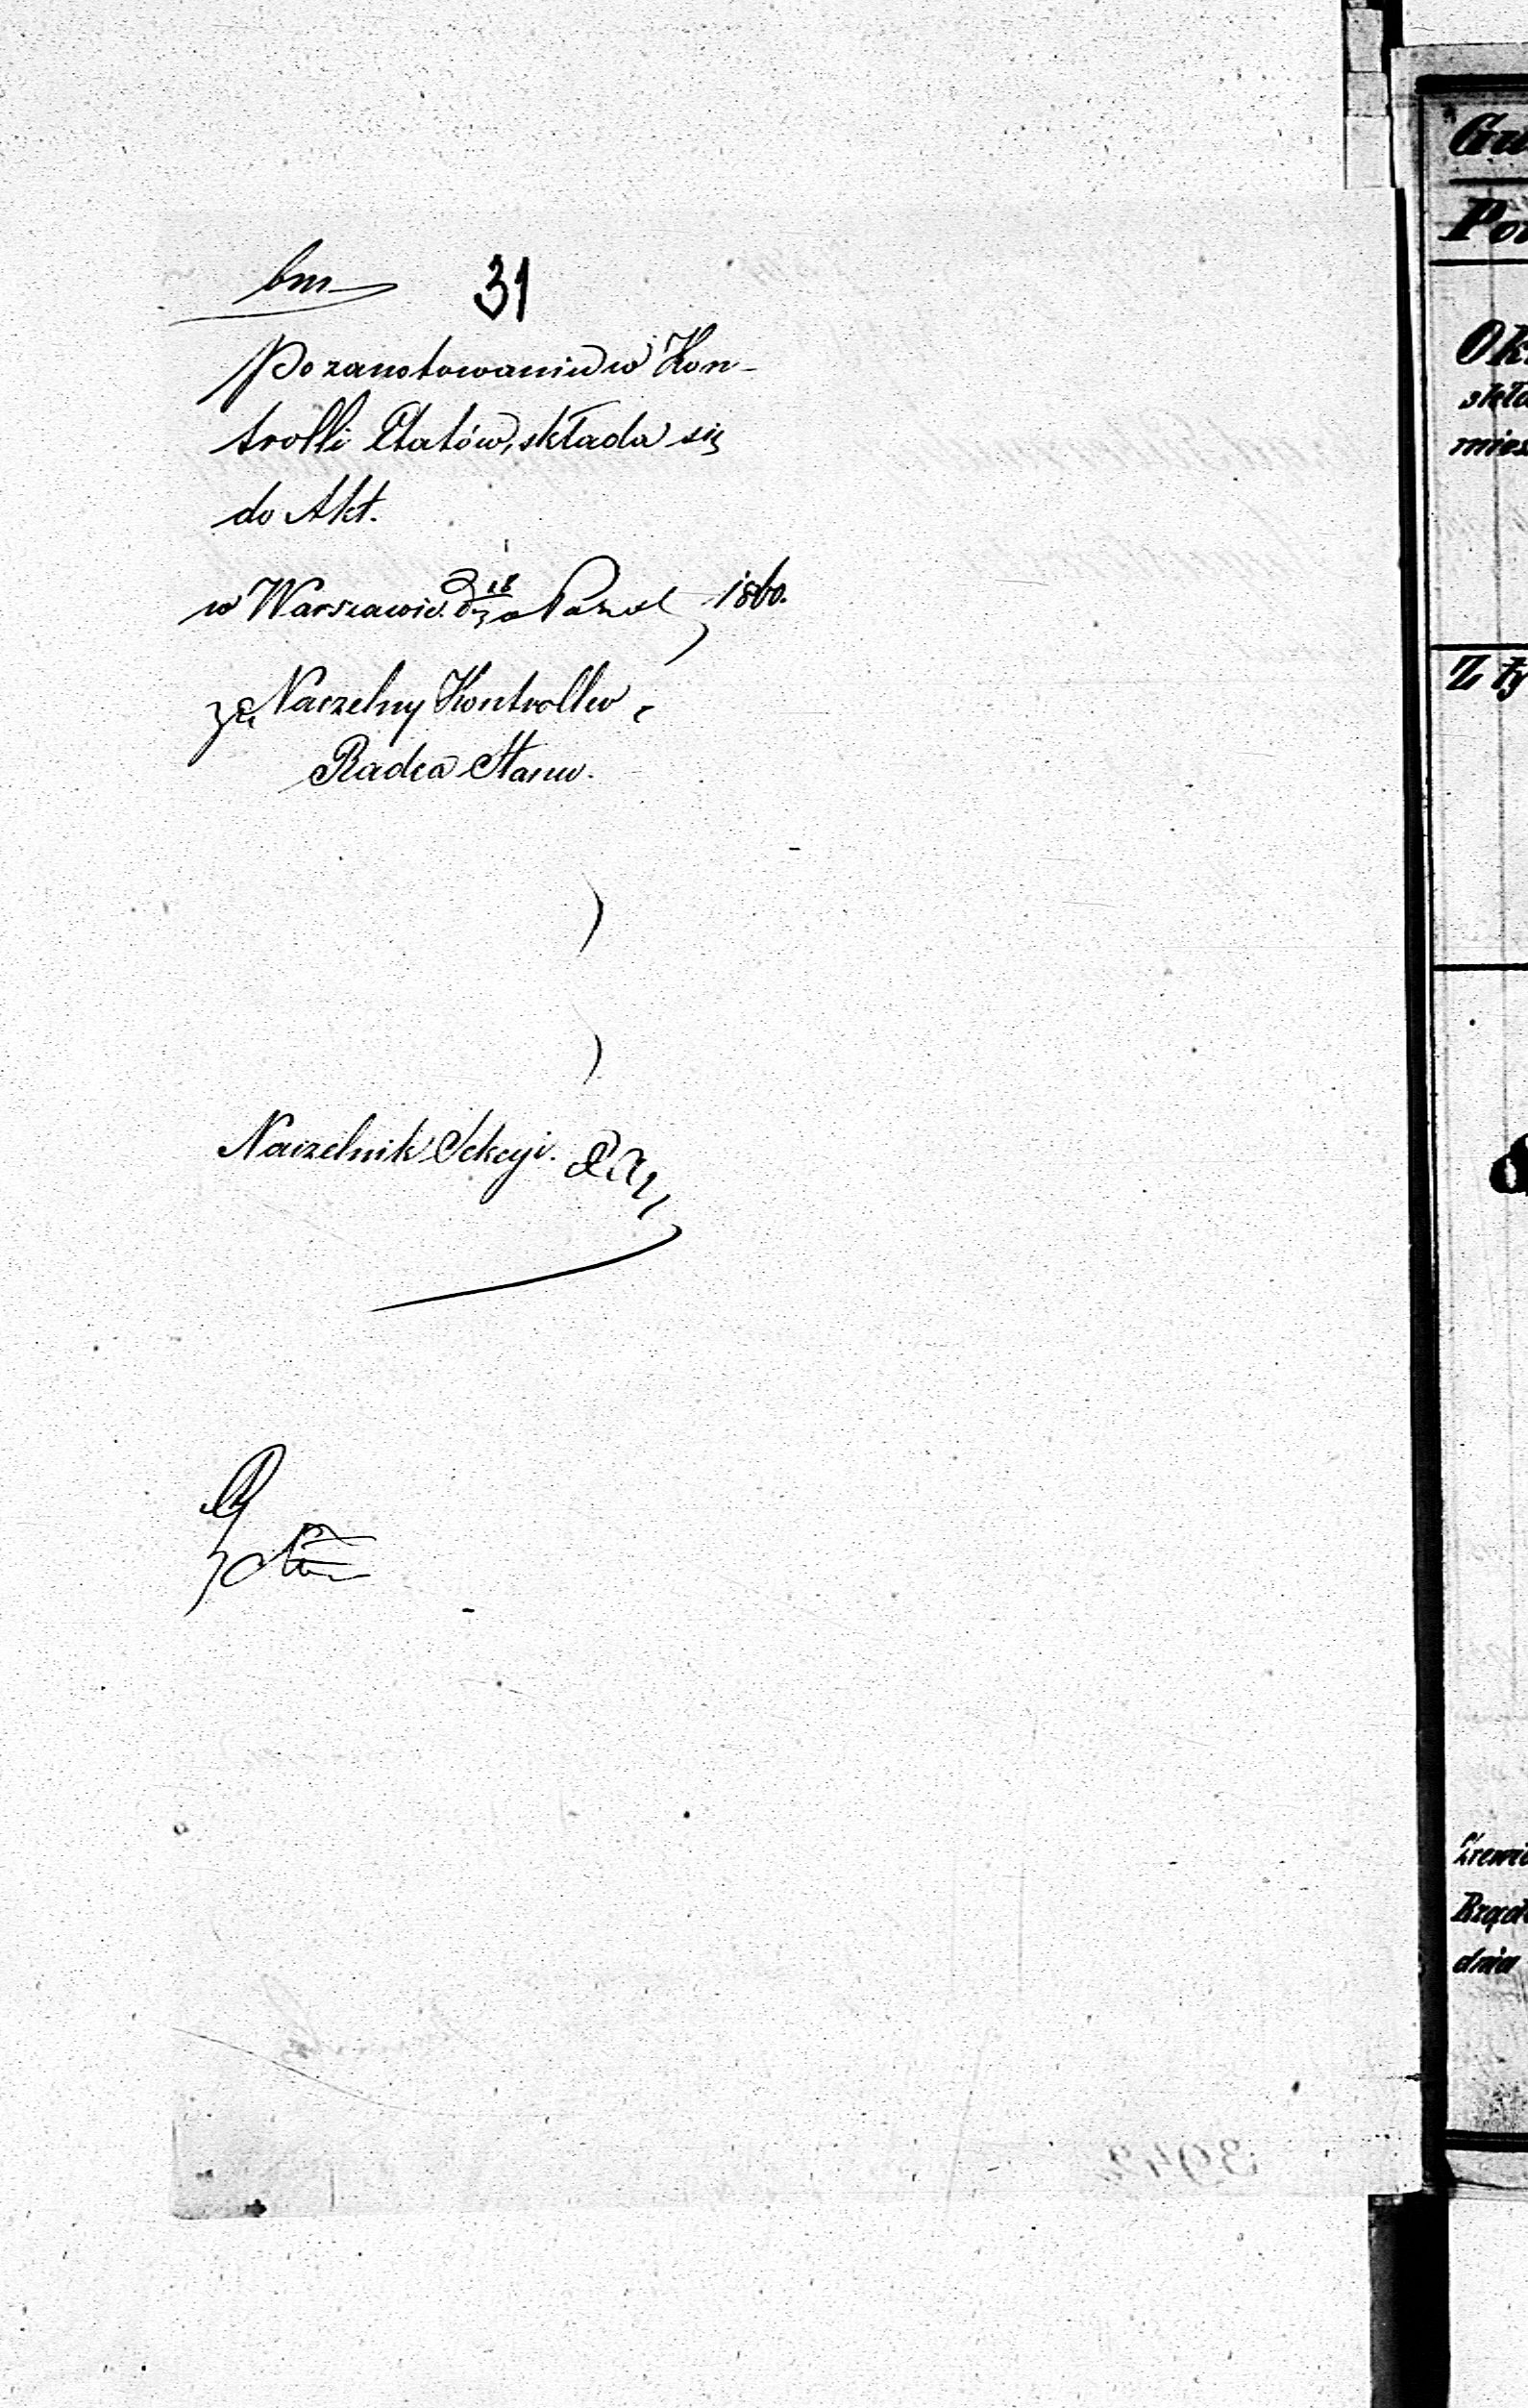 bm
31
Po zanotowaniu w Kon-
trolli Etatów, składa się
do Akt.
w Warszawie d. 18/30 1860.
za Naczelny Kontroller,
Radca Stanu.
Naczelnik Sekcyi.
Gu
Pow
Ok
skła
mies
Z ty
Rząd
dnia